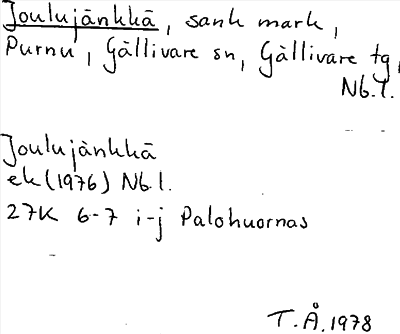 Joulujänkkä, sank mark,
Purnu, Gällivare sn, Gällivare tg,
Nb.l.
Joulujänkkä
ek (1976) Nb.l.
27K 6-7 i-j Palohuornas
T.Å. 1978